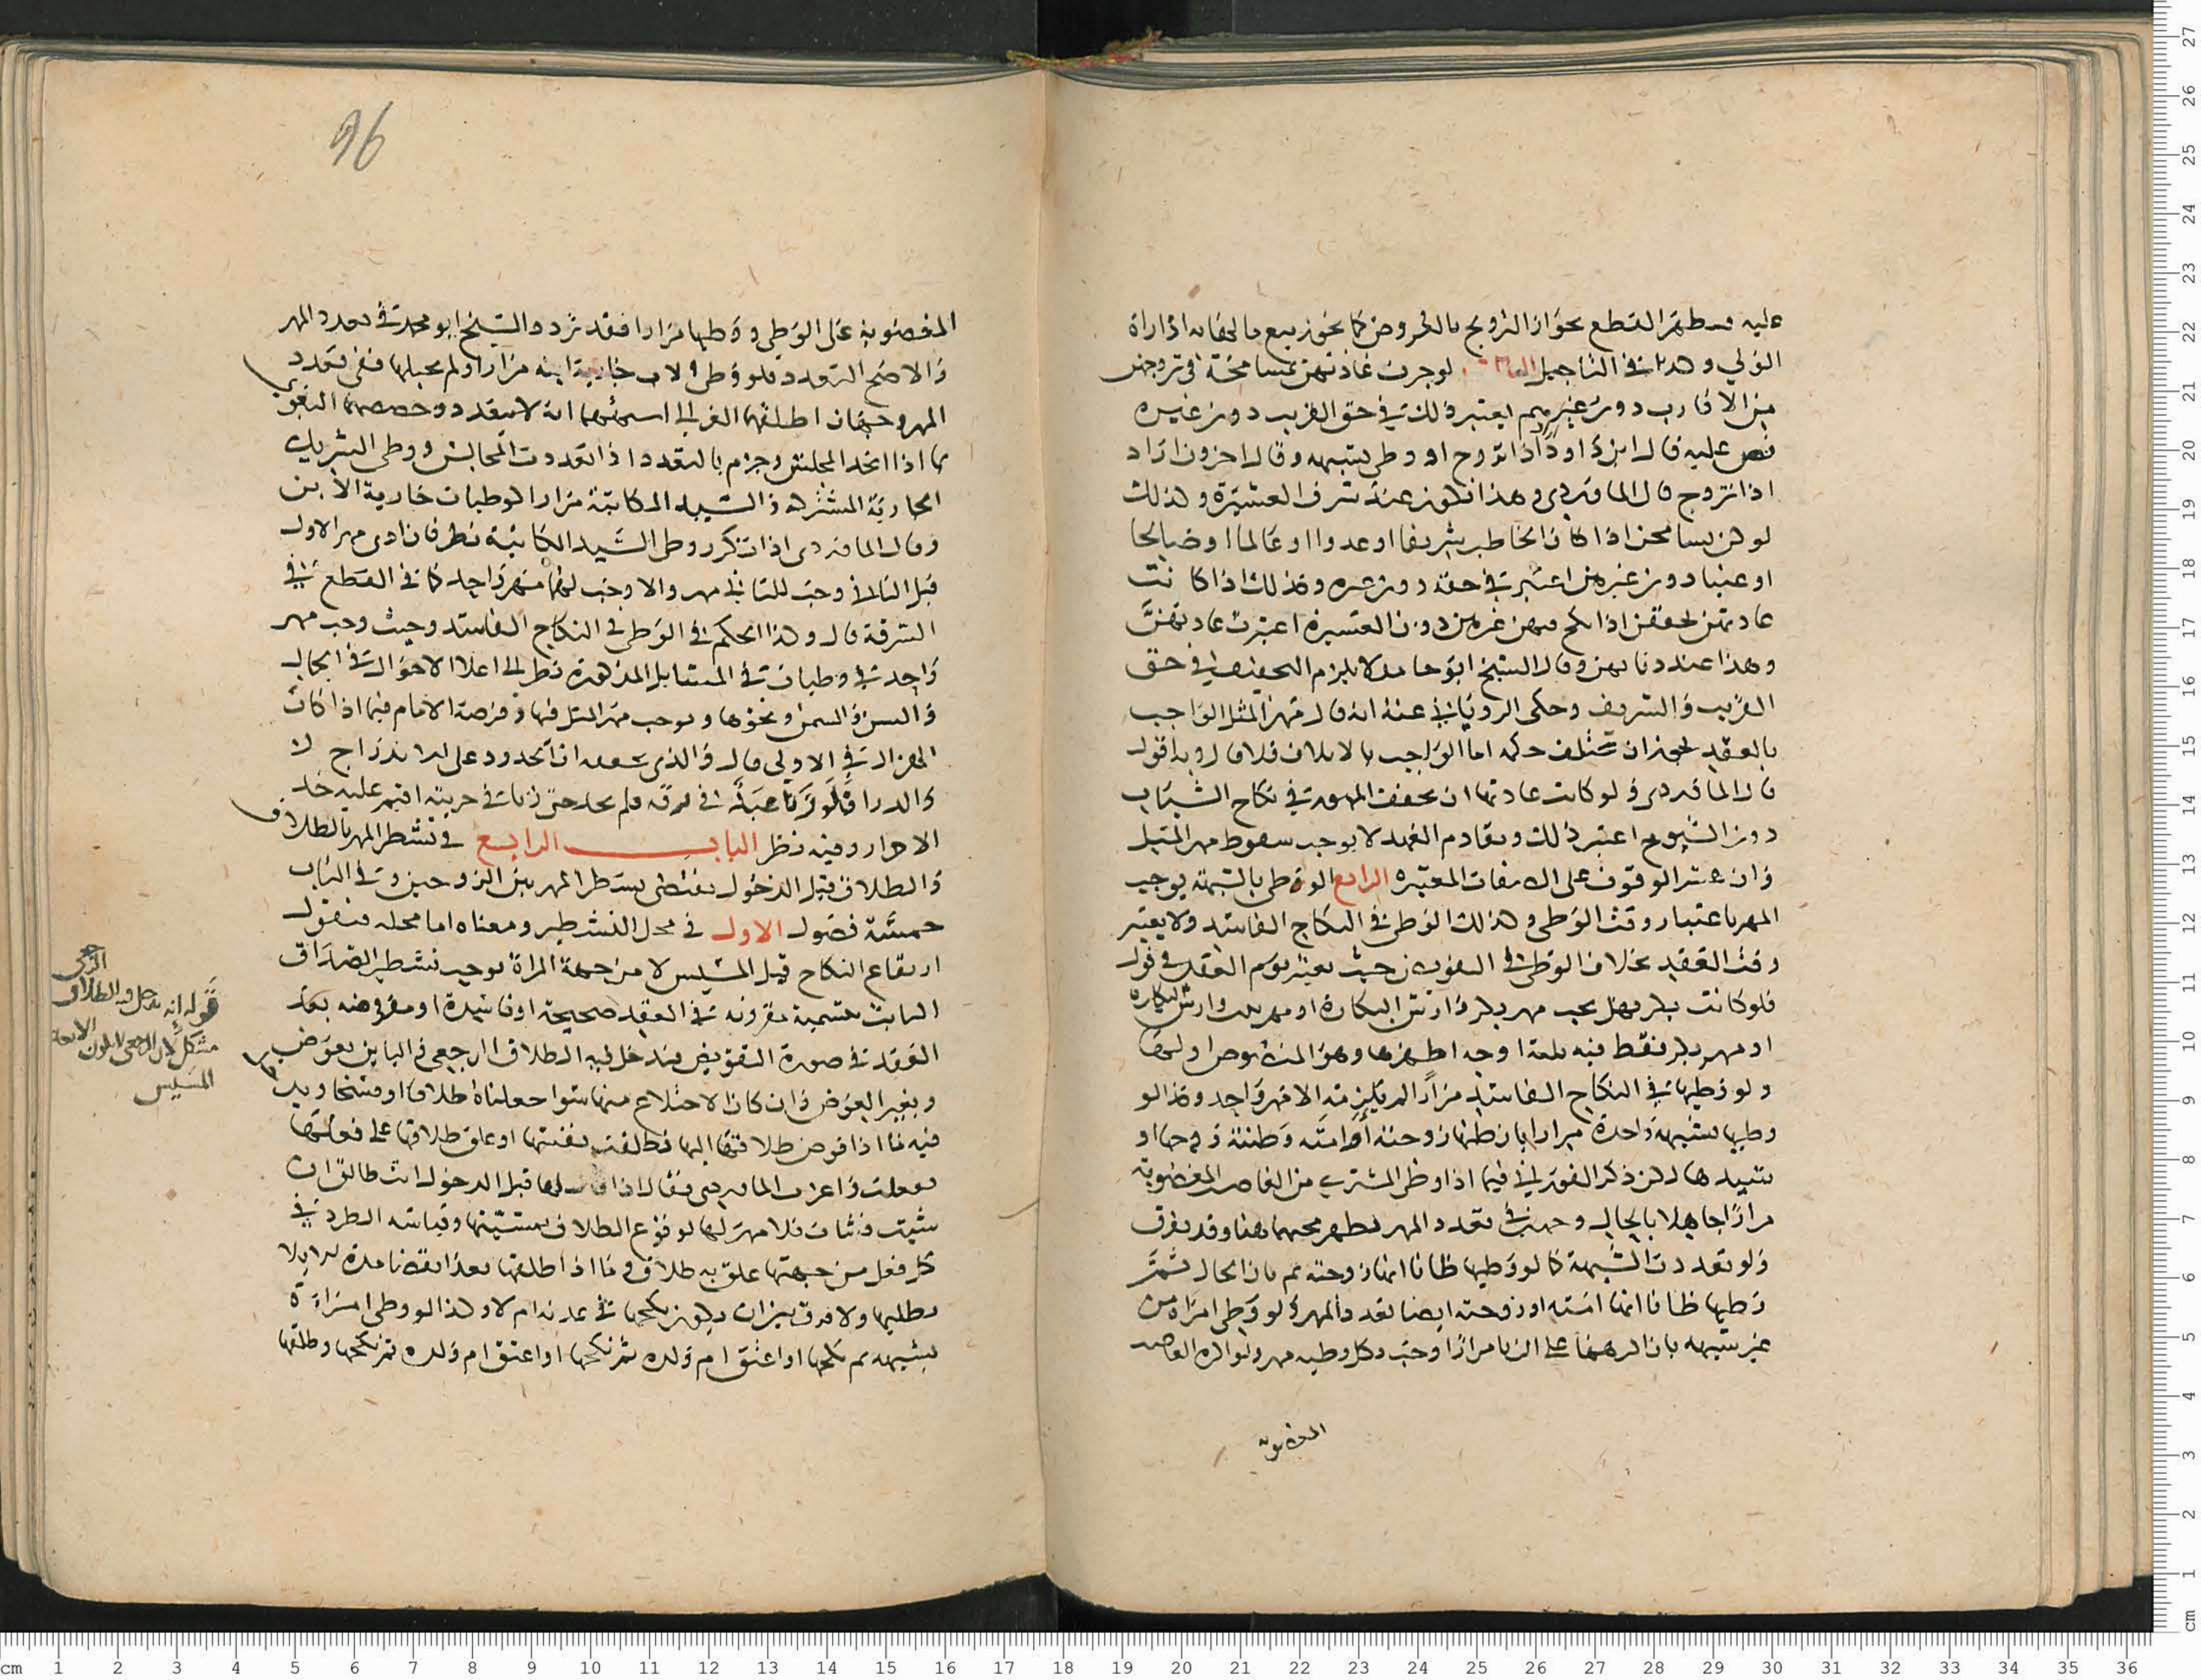 عليه فيظهر القطع بجواز التزويج بالعروض كما يجوز بيع مالها به اذا رآه
الولي و في التاجيل لو جرت عادتهن بمسامحة في تزوجهن
من الاقارب دون غيرهم يعتبر ذلك في حق القريب دون غيره
نص عليه قال ابن داود اذا تزوج او وطى بشبهه وقال اخرون اراد
اذا تزوج قال الماوردى وهذا يكون عند شرف العشيرة وكذلك
لو كن يسامحن اذا كان الخاطب شريفا او عدوا او عالما او صالحا
او غنيا دون غيرهن اعتبر في حقه دون غيره وكذلك اذا كانت
عادتهن يخففن اذا نكح فيهن غيرهن دون العشيرة اعتبرت عادتهن
وهذا عند دنايهن وقال الشيخ ابو حامد لا يلزم التخفيف في حق
القريب والشريف وحكى الروياني عنه انه قال مهر المثل الواجب
بالعقد يجوز ان يختلف حكمه اما الواجب بالاتلاف فلا قال وبه اقول
قال الماوردى ولو كانت عادتها ان يخفف المهر في نكاح الشباب
دون الشيوخ اعتبر ذلك وتقادم العهد لا يوجب سقوط مهر المثل
وان عسر الوقوف على الصفات المعتبره الرابع الوطى بالشبهة يوجب
المهر باعتبار وقت الوطى وكذلك الوطى في النكاح الفاسد ولا يعتبر
وقت العقد بخلاف الوطى في التفويض حيث يعتبر يوم العقد في قول
فلو كانت بكر فهل يجب مهر بكر وارش البكارة او مهر ثيب وارش البكارة
او مهر بكر فقط فيه ثلثة اوجه اظهرها وهو المنصوص اولها
ولو وطيها في النكاح الفاسد مرارا لم يلزمه الا مهر واحد وكذا لو
وطيها بشبهة واحدة مرارا بان ظنها زوجته او امته وظنته زوجها او
سيدها لكن ذكر الفوراني فيما اذا وطى المشترى من الغاصب المغصوبة
مرارا جاهلا بالحال وجهين في تعدد المهر فيظهر مجيهما هنا وقد يفرق
ولو تعددت الشبهة كما لو وطيها ظانا انها زوجته ثم بان الحال ثم
وطيها ظانا انها امته او زوجته ايضا تعدد المهر ولو وطى امراة من
غير شبهه بان اكرهها على الزنا مرارا وجب بكل وطيه مهر ولو اكره الغاصب
المغصوبة
96
المغصوبة على الوطى ووطيها مرارا فقد تردد الشيخ ابو محمد في تعدد المهر
والاصح التعدد فلو وطى الاب جارية ابنه مرارا ولم يحبلها ففي تعدد
المهر وجهان اطلقهما الغزالي اصحهما انه لا يتعدد وخصصهما البغوي
بما اذا اتحد المجلس وجزم بالتعدد اذا تعددت المجالس ووطى الشريك
الجارية المشتركة والسيد المكاتبة مرارا كوطيات جارية الابن
وقال الماوردى اذا تكرر وطى السيد المكاتبة نظر فان ادى مهر الاول
قبل الثاني وجب للثاني مهر والا وجب لهما مهر واحد كما في القطع في
السرقة قال وكذا الحكم في الوطى في النكاح الفاسد وحيث وجب مهر
واحد في وطيات في المسايل المذكورة نظر الى اعلا الاحوال في الجمال
والسن والسمن ونحوها ويوجب مهر المثل فيها وفرضه الامام فيما اذا كانت
الهزال في الاولى قال والذى نحققه ان الحدود على الاندراج
والدرا فلو زنا عبد في رقه فلم يحد حتى زنا في حريته اقيم عليه حد
الاحرار وفيه نظر الباب الرابع في تشطر المهر بالطلاق
والطلاق قبل الدخول يقتضى تشطر المهر بين الزوجين وفي الباب
خمسة فصول الاول في محل التشطير ومعناه اما محله فنقول
ارتفاع النكاح قبل المسيس لا من جهة المراة يوجب تشطير الصداق
الثابت بتسمية مقرونه في العقد صحيحة او فاسدة او مفروضه بعد
العقد في صورة التفويض فيدخل فيه الطلاق الرجعى والباين بعوض
وبغير العوض وان كان الاختلاع منها سوا جعلناه طلاقا او فسخا ويدخل
فيه ما اذا فوض طلاقها اليها فطلقت نفسها او علق طلاقها على فعلها
ففعلت واغرب الماوردى فقال اذا قال لها قبل الدخول انت طالق ان
شيت فشات فلا مهر لها لوقوع الطلاق بمشيتها وقياسه الطرد في
كل فعل من جهتها علق به طلاق وما اذا طلقها بعد انقضا مدة الايلا
بطلبها ولا فرق بين ان يكون نكحها في عدته ام لا وكذا لو وطى امراة
بشبهه ثم نكحها او اعتق ام ولده ثم نكحها او اعتق ام ولده ثم نكحها وطلقها
قوله انه يدخل فيه الطلاق الرجعى
مشكل لان الرجعى لا يكون الا بعد
المسيس